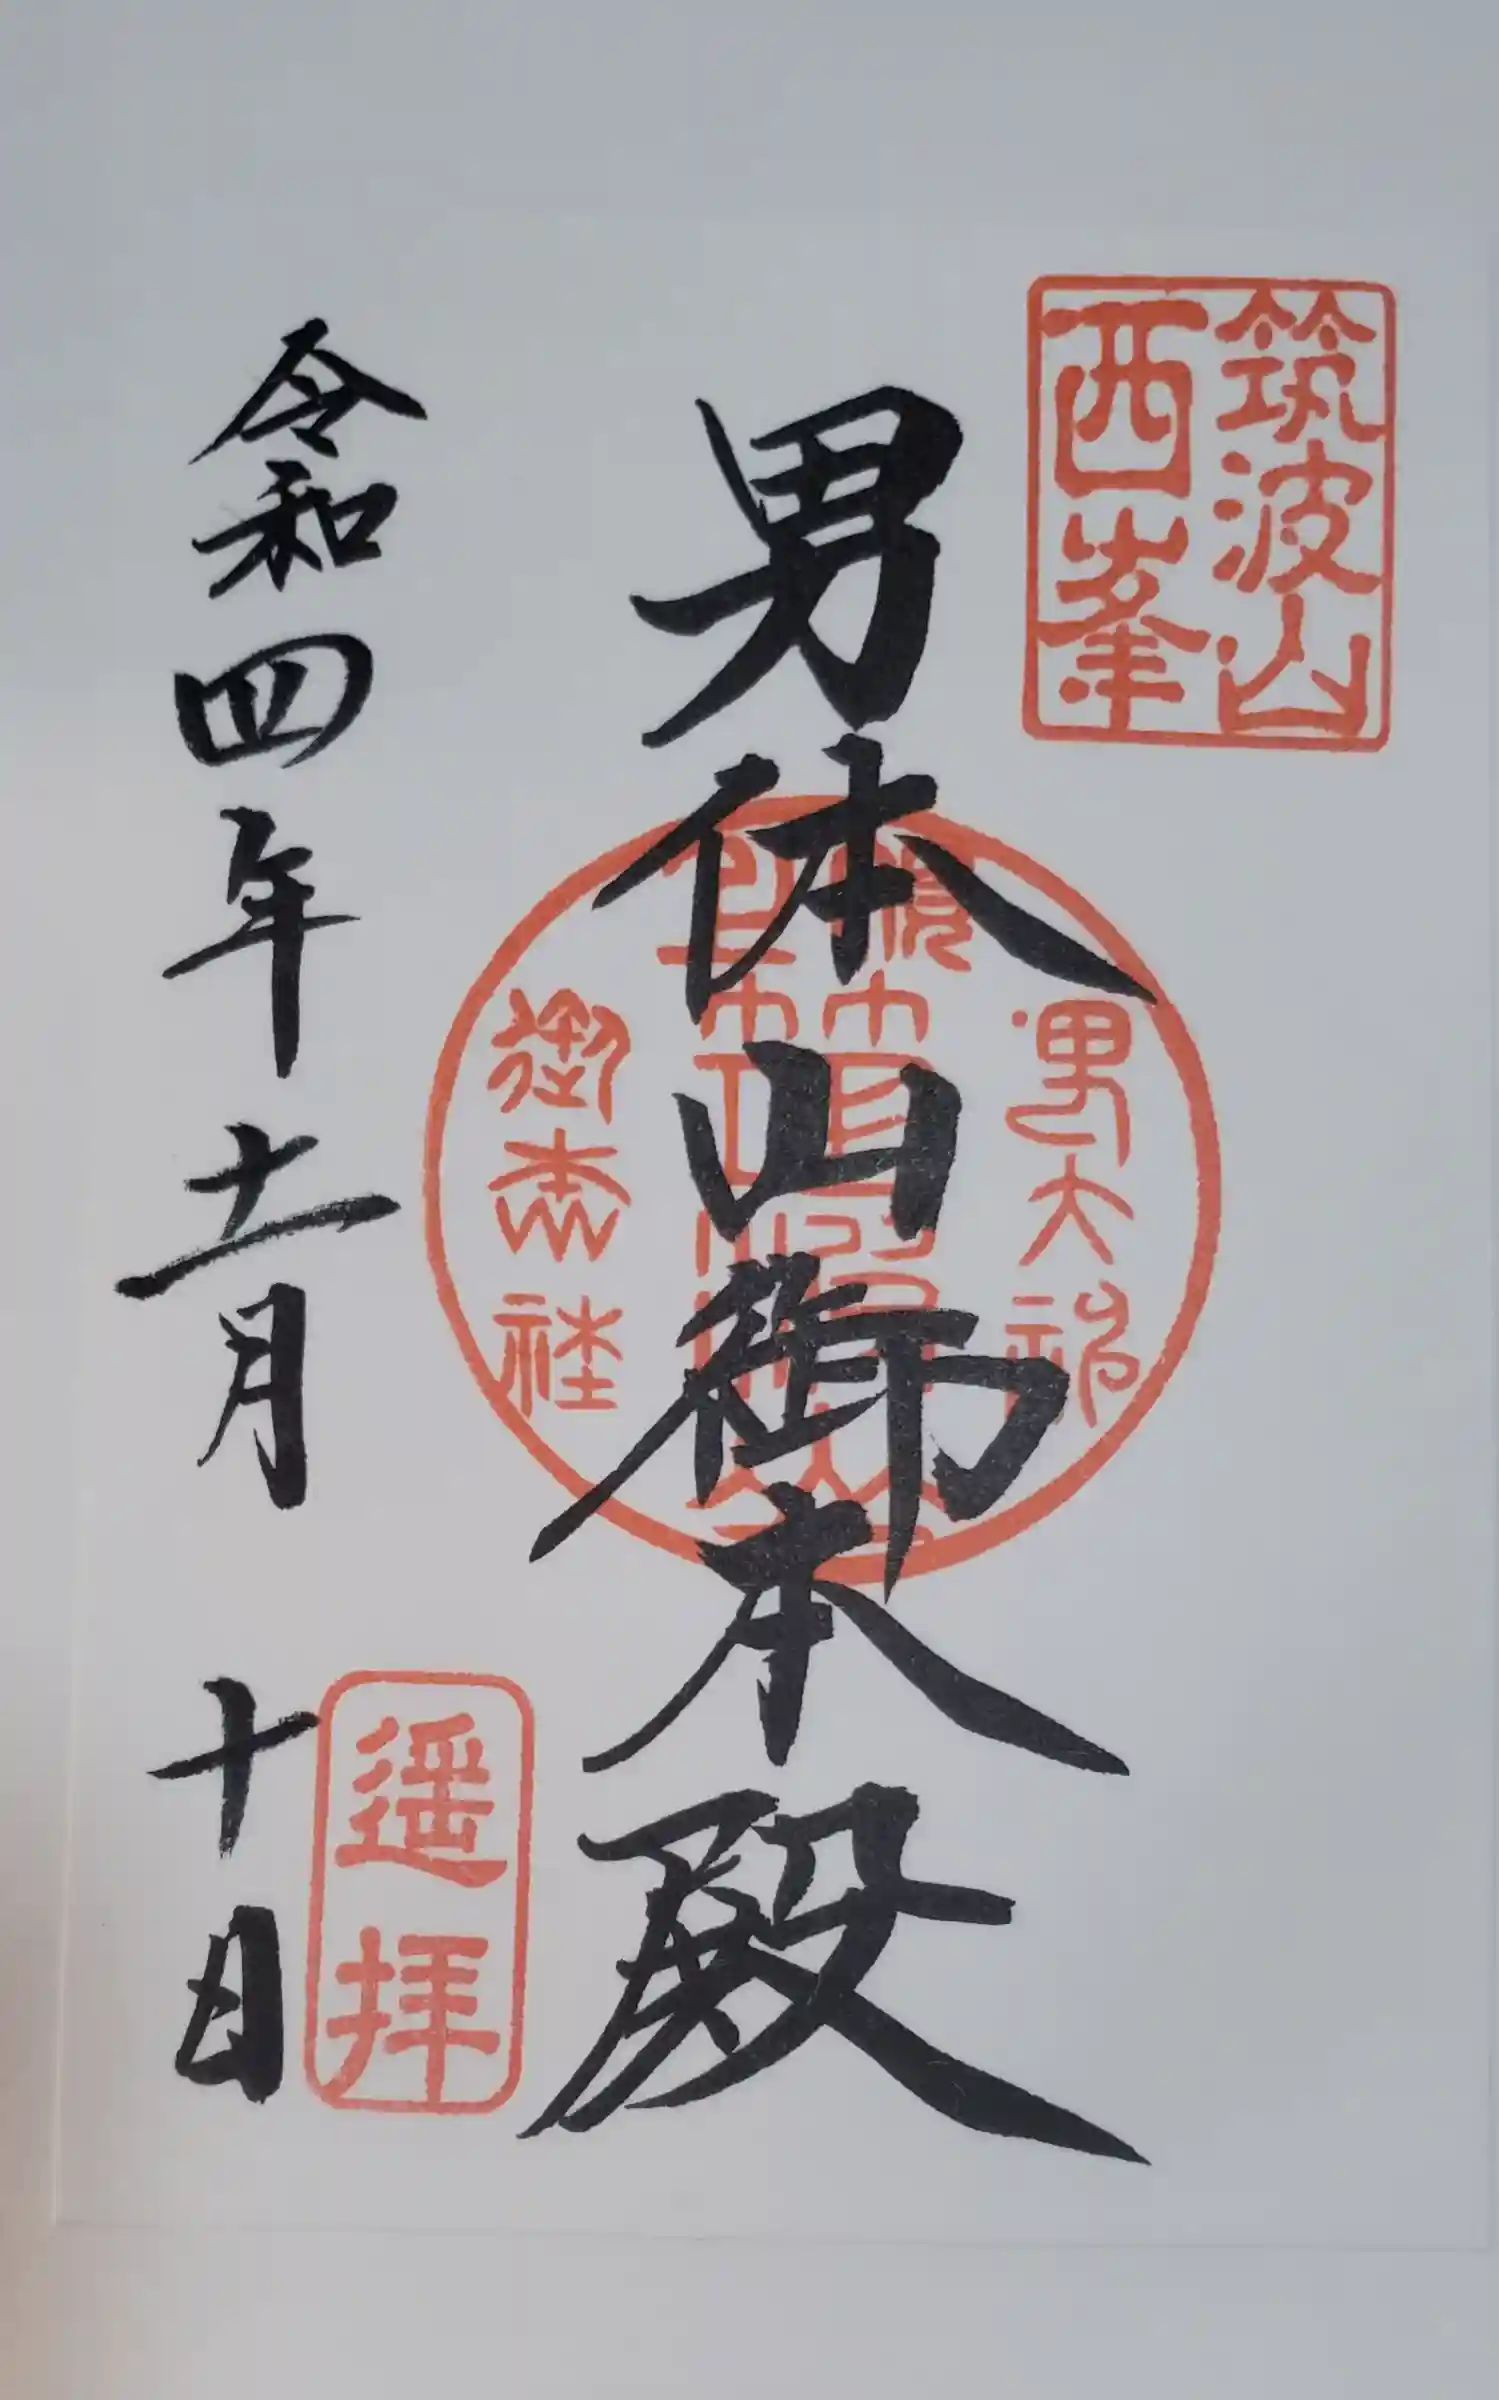 筑波山
西峯
男体山御本殿
男大神
御本社
遥拝
令和四年十一月 十日